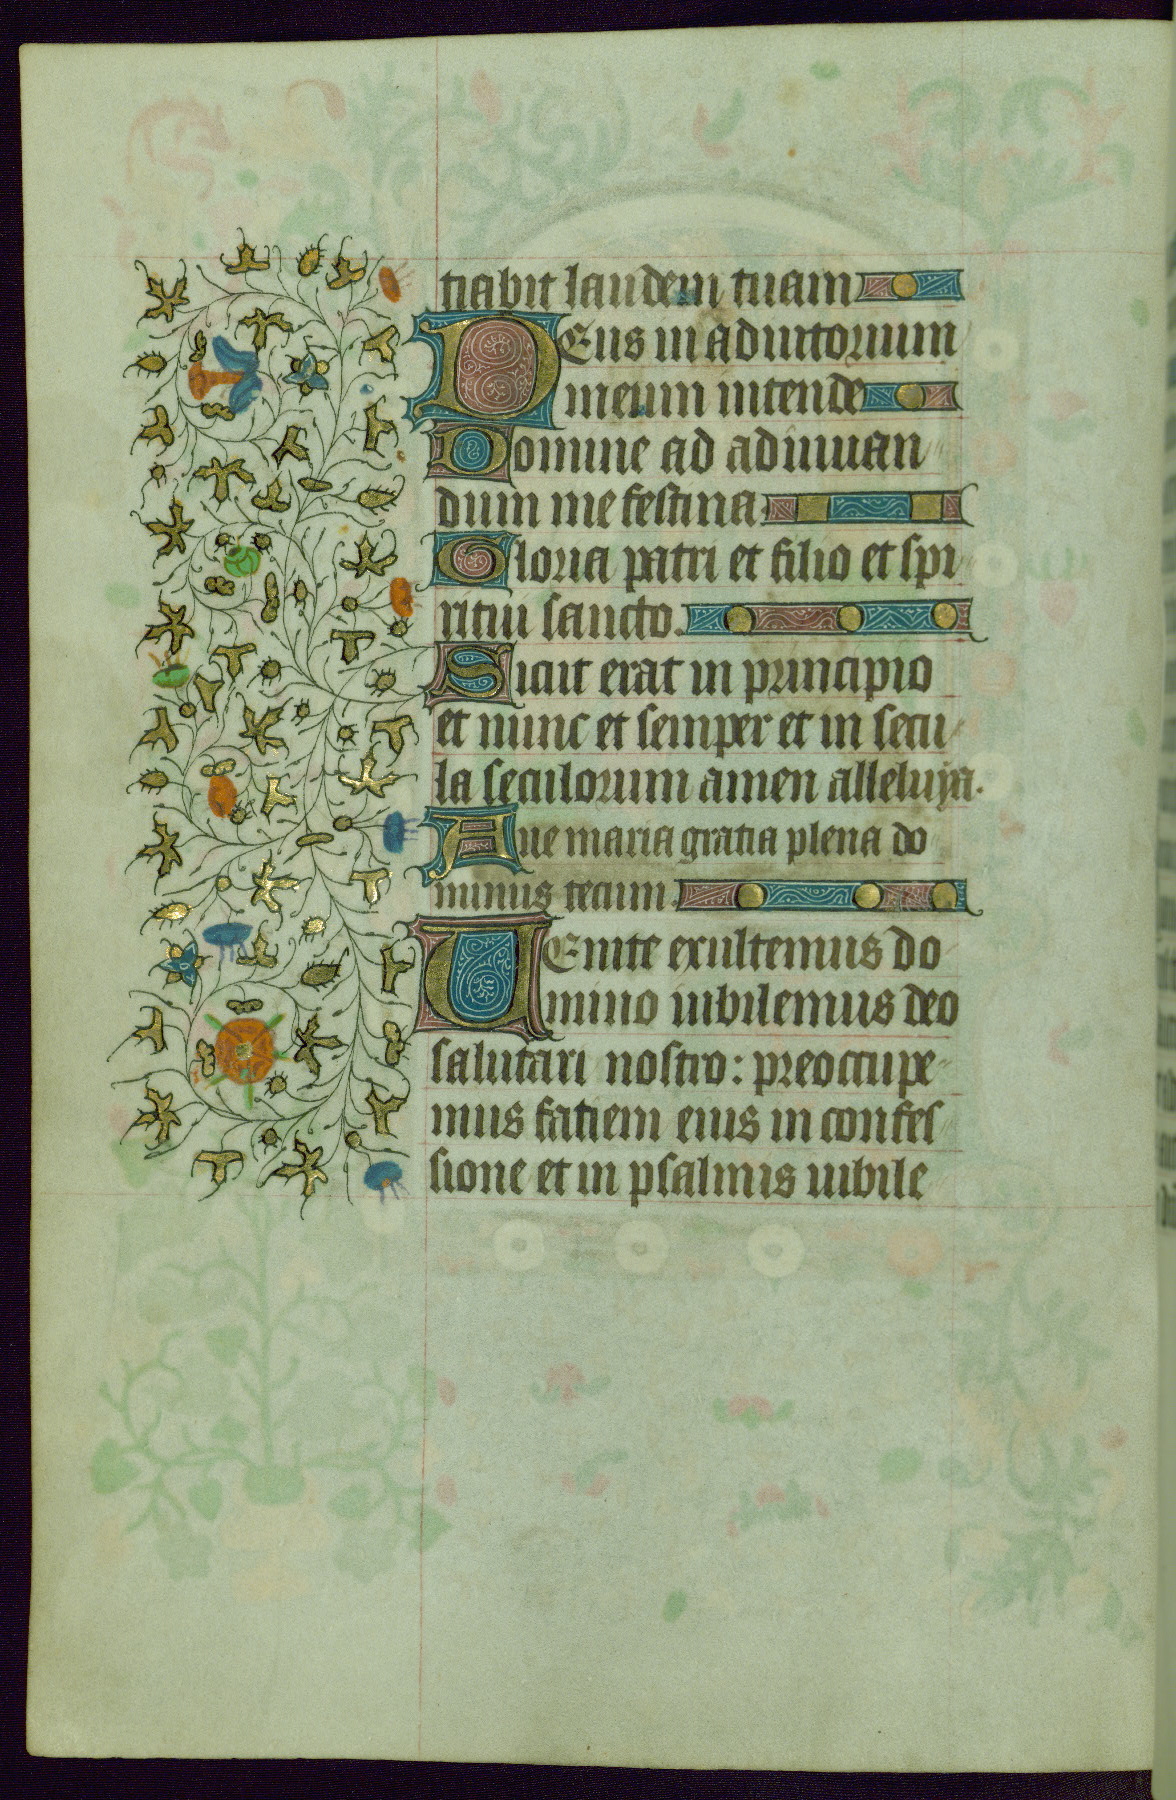 tiabit laudem tuam
Deus in adiutorium
meum intende
Domine ad adiuuan
dum me festina.
Gloria patri et filio et spi
ritui sancto.
Sicut erat in principio
et nunc et semper et in secu
la seculorum amen alleluya.
Aue maria gratia plena do
minus tecum.
Uenite exultemus do
mino iubilemus deo
salutari nostro: preoccupe
mus faciem eius in confes
sione et in psalmis iubile